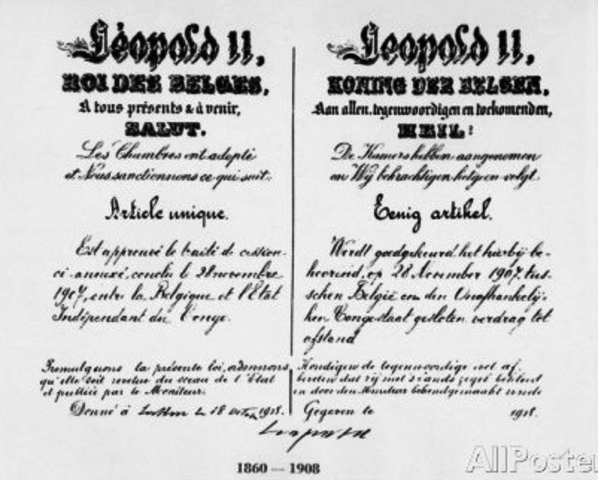 Léopold II,
ROI DES BELGES,
A tous présents & à venir,
SALUT.
Les Chambres ont adopté
et Nous sanctionnons ce qui suit:
Article unique.
Est approuvé le traité de cession
ci-annexé, conclu le 28 novembre
1907, entre la Belgique et l'Etat
Indépendant du Congo.
Promulguons la présente loi, ordonnons
qu'elle soit revêtue du sceau de l'Etat
et publiée par le Moniteur.
Donné à le 18 1908.
Leopold II,
KONING DER BELGEN,
Aan allen, tegenwoordigen en toekomenden,
HEIL!
De Kamers hebben aangenomen
en Wij bekrachtigen hetgeen volgt:
Eenig artikel.
Wordt goedgekeurd, het hierbij be-
hoorend, op 28 November 1907, tus-
schen België en den Onafhankelij-
ken Congostaat gesloten verdrag tot
afstand
Kondigen de tegenwoordige wet af,
bevelen dat zij met 's Lands zegel bekleed
en door den Moniteur bekendgemaakt worde
Gegeven te 1908.
1860 — 1908
AllPoster